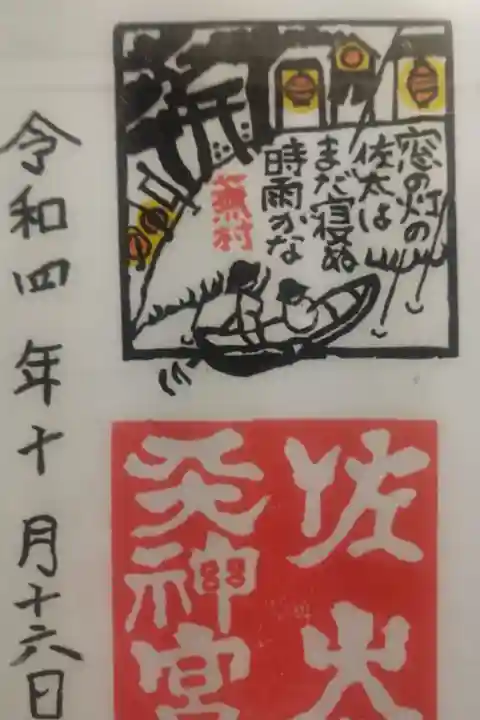 窓の灯の
佐太は
まだ寝ぬ
時雨かな
蕪村
佐太
天神宮
令和四年十月十六日